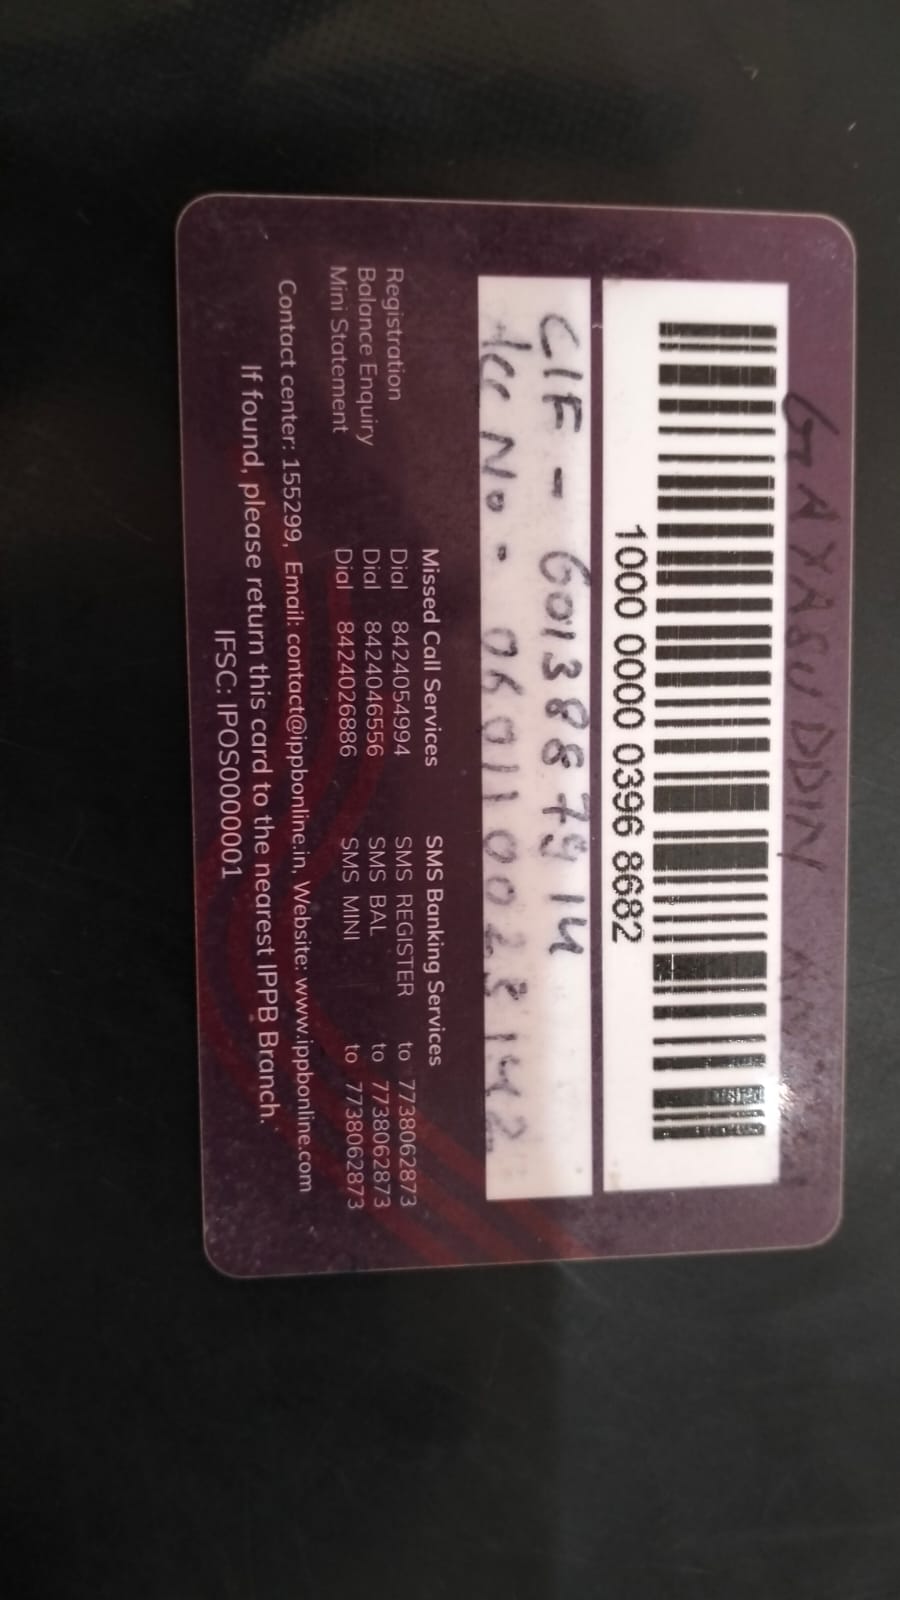 GAYASUDDIN
1000 0000 0396 8682
CIF - 6013887914
Acc No - 060110023142
Missed Call Services SMS Banking Services
Registration Dial 8424054994 SMS REGISTER to 7738062873
Balance Enquiry Dial 8424046556 SMS BAL to 7738062873
Mini Statement Dial 8424026886 SMS MINI to 7738062873
Contact center: 155299, Email: contact@ippbonline.in, Website: www.ippbonline.com
If found, please return this card to the nearest IPPB Branch.
IFSC: IPOS0000001